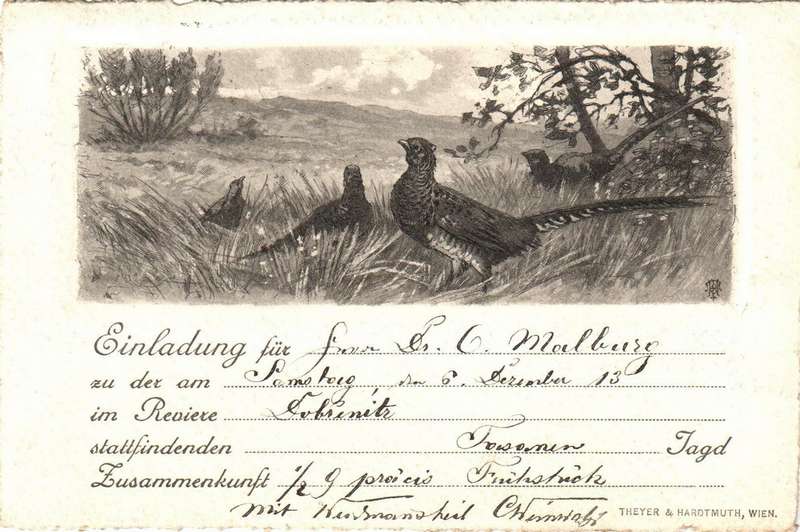 Einladung für Herrn Dr. C. Malburg
zu der am Samstag, den 6. Dezember 13
im Reviere Dobřenitz
stattfindenden Fasanen Jagd
Zusammenkunft 1/2 9 präcis Frühstück
Mit Weidmannsheil
THEYER & HARDTMUTH, WIEN.